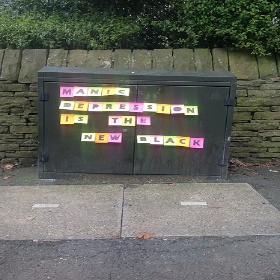 MANIC
DEPRESSION
IS THE
NEW BLACK